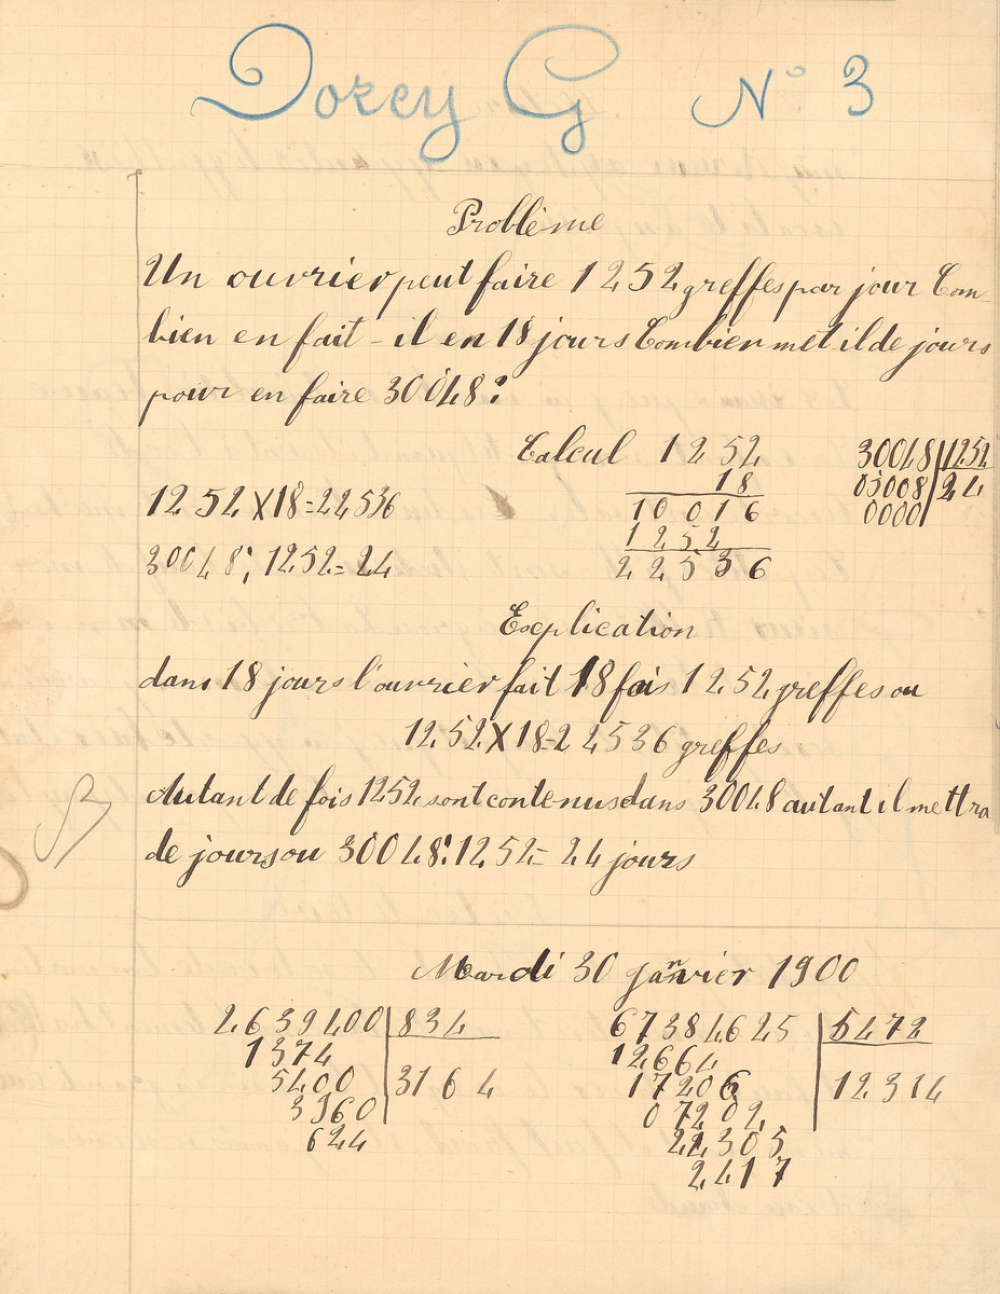 Dorey G. N° 3
Problème
Un ouvrier peut faire 1252 greffes par jour Com-
bien en fait-il en 18 jours Combien met il de jours
pour en faire 30048?
Calcul 1252 30048 1252
18 03008 24
1252 X 18 = 22536 10016 0000
1252
30048 : 1252 = 24 22536
Explication
dans 18 jours l'ouvrier fait 18 fois 1252 greffes ou
1252 X 18 = 22536 greffes
Autant de fois 1252 sont contenus dans 30048 autant il mettra
de jours ou 30048 : 1252 = 24 jours
Mardi 30 janvier 1900
2639400 834 67384625 5472
1374 12664
5400 3164 17206 12314
3960 07202
624 22305
2417